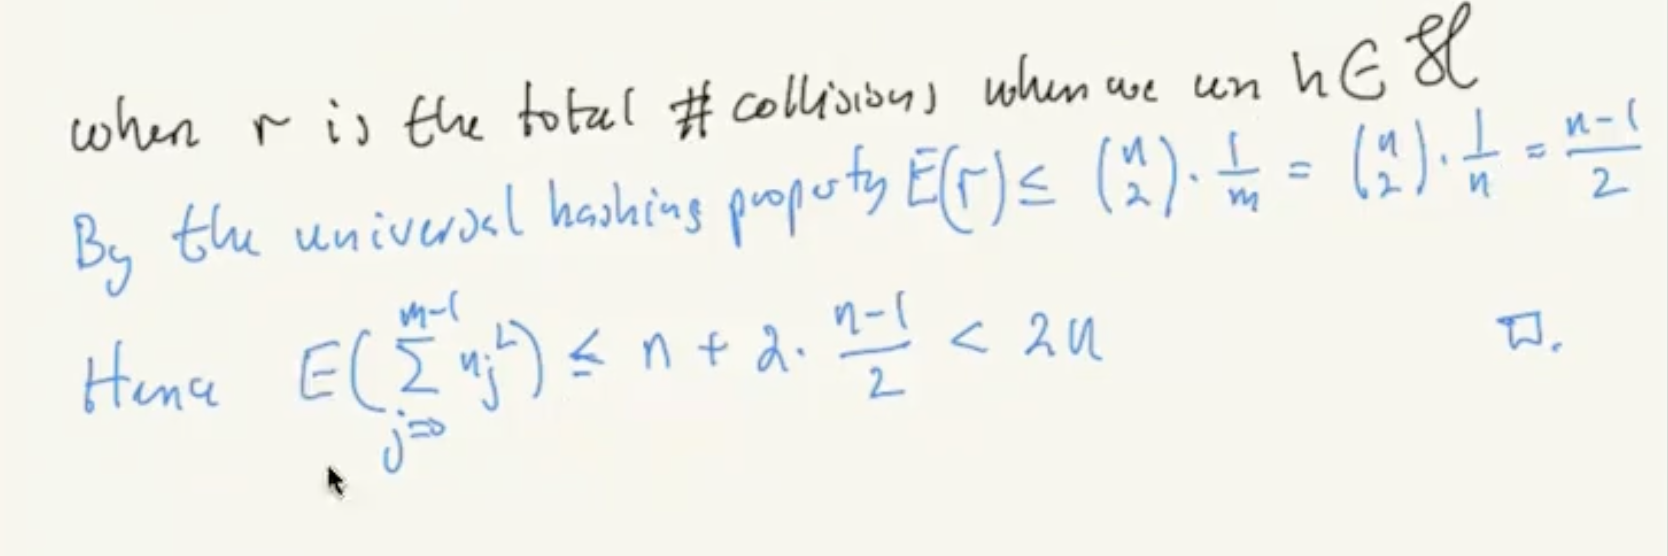 when r is the total # collisions when we use h ∈ ℋ
By the universal hashing property E(r) ≤ (n 2) · 1/m = (n 2) · 1/n = n-1/2
Hence E(∑_{j=0}^{m-1} n_j^2) ≤ n + 2 · n-1/2 < 2n □.